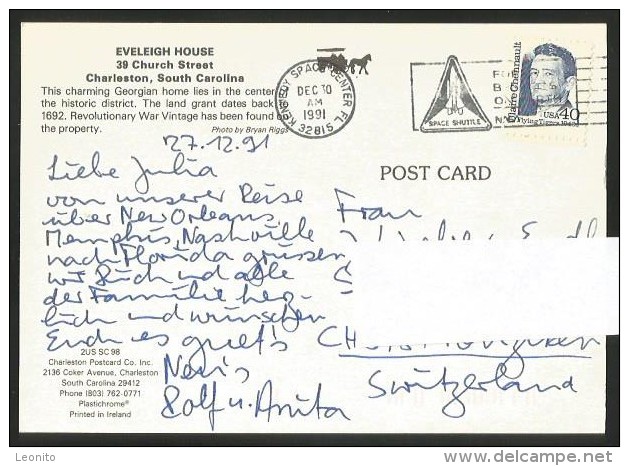 EVELEIGH HOUSE
39 Church Street
Charleston, South Carolina
This charming Georgian home lies in the center
the historic district. The land grant dates back
1692. Revolutionary War Vintage has been found o
the property.
Photo by Bryan Riggs
KENNEDY SPACE CENTER FL
DEC 30
AM
1991
32815
SPACE SHUTTLE
Claire Chennault
USA 40
Flying Tigers 1940s
27.12.91
Liebe Julia
von unserer Reise
über New Orleans,
Memphis, Nashville
nach Florida grüssen
wir Euch und alle
der Familie herz-
lich und wünschen
Euch es guet's
Neu's
Rolf u. Anita
POST CARD
Frau
CH
Switzerland
2US SC 98
Charleston Postcard Co. Inc.
2136 Coker Avenue, Charleston
South Carolina 29412
Phone (803) 762-0771
Plastichrome®
Printed in Ireland
Leonito
http://www.delcampe.net